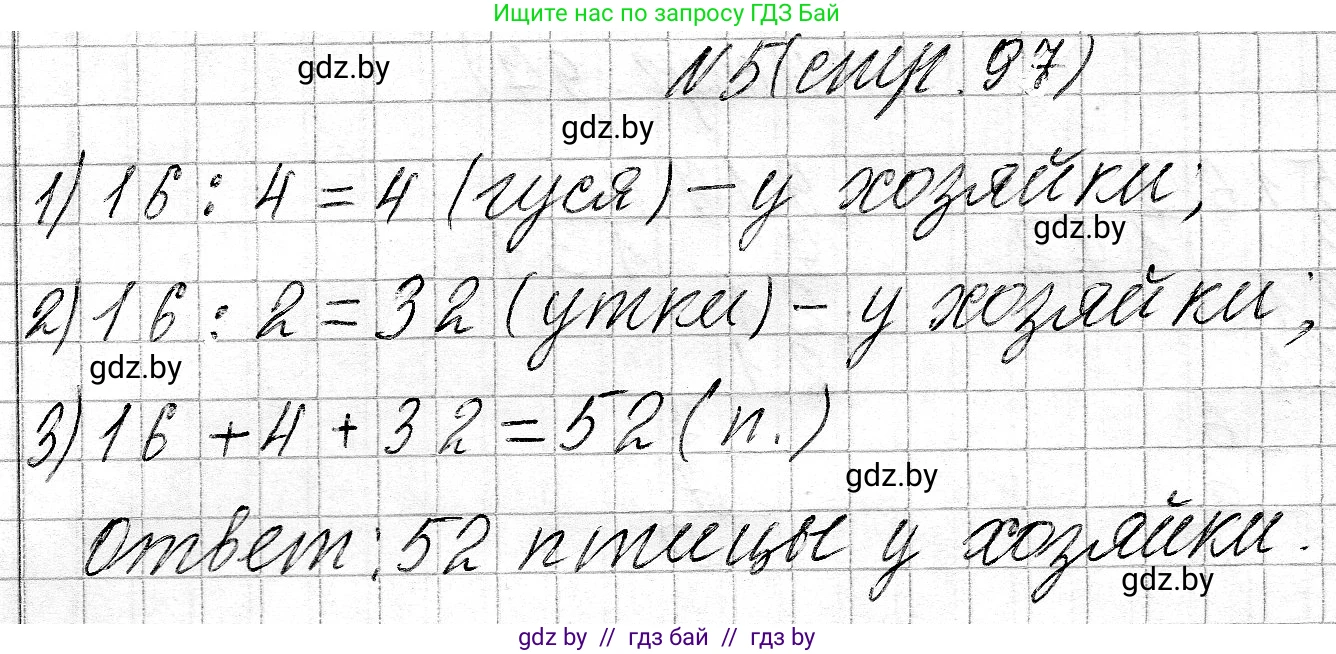 Ищите нас по запросу ГДЗ Бай
gdz.by
№5(стр. 97)
gdz.by
1) 16 : 4 = 4 (гуся) – у хозяйки;
gdz.by
2) 16 : 2 = 32 (утки) – у хозяйки;
gdz.by
3) 16 + 4 + 32 = 52 (п.)
gdz.by
Ответ: 52 птицы у хозяйки.
gdz.by
gdz by // гдз бай // гдз by